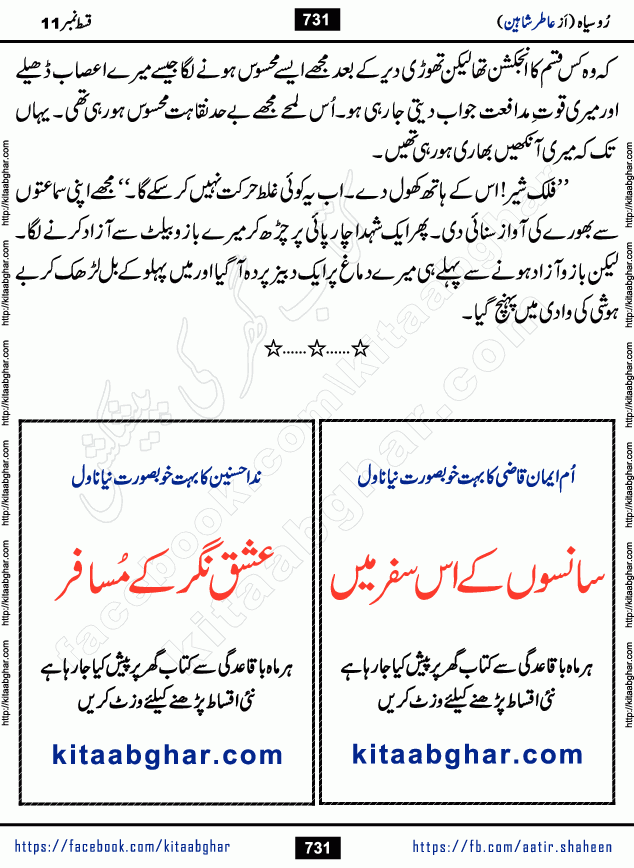 رُوسیاہ (اَز عاطر شاہین)
731
قسط نمبر 11
کہ وہ کس قسم کا انجکشن تھا لیکن تھوڑی دیر کے بعد مجھے ایسے محسوس ہونے لگا جیسے میرے اعصاب ڈھیلے
اور میری قوتِ مدافعت جواب دیتی جا رہی ہو۔ اُس لمحے مجھے بے حد نقاہت محسوس ہو رہی تھی۔ یہاں
تک کہ میری آنکھیں بھاری ہو رہی تھیں۔
”فلک شیر! اس کے ہاتھ کھول دے۔ اب یہ کوئی غلط حرکت نہیں کر سکے گا۔“ مجھے اپنی سماعتوں
سے بھورے کی آواز سنائی دی۔ پھر ایک شہدا چارپائی پر چڑھ کر میرے بازو بیلٹ سے آزاد کرنے لگا۔
لیکن بازو آزاد ہونے سے پہلے ہی میرے دماغ پر ایک دبیز پردہ آ گیا اور میں پہلو کے بل لڑھک کر بے
ہوشی کی وادی میں پہنچ گیا۔
☆......☆......☆
اُم ایمان قاضی کا بہت خوبصورت نیا ناول
سانسوں کے اس سفر میں
ہر ماہ باقاعدگی سے کتاب گھر پر پیش کیا جا رہا ہے
نئی اقساط پڑھنے کیلئے وزٹ کریں
kitaabghar.com
ندا حسنین کا بہت خوبصورت نیا ناول
عشق نگر کے مُسافر
ہر ماہ باقاعدگی سے کتاب گھر پر پیش کیا جا رہا ہے
نئی اقساط پڑھنے کیلئے وزٹ کریں
kitaabghar.com
http://kitaabghar.com http://kitaabghar.com http://kitaabghar.com http://kitaabghar.com http://kitaabghar.com http://kitaabghar.com
http://kitaabghar.com http://kitaabghar.com http://kitaabghar.com http://kitaabghar.com http://kitaabghar.com http://kitaabghar.com
کتاب گھر کی پیشکش
facebook.com/kitaabghar
kitaabghar.com
https://facebook.com/kitaabghar
731
https://fb.com/aatir.shaheen